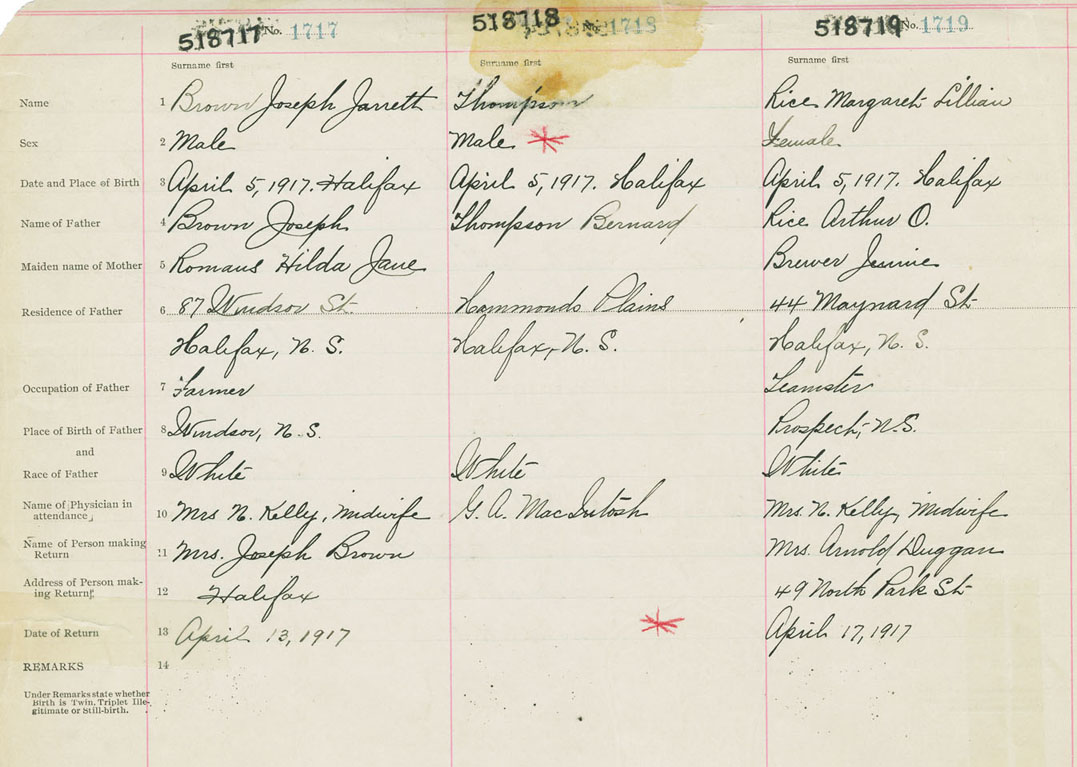 518717 No. 1717 518718 No. 1718 518719 No. 1719
Surname first Surname first Surname first
Name 1 Brown Joseph Jarrett Thompson Rice Margaret Lillian
Sex 2 Male Male Female
Date and Place of Birth 3 April 5, 1917. Halifax April 5, 1917. Halifax April 5, 1917. Halifax
Name of Father 4 Brown Joseph Thompson Bernard Rice Arthur O.
Maiden name of Mother 5 Romans Hilda Jane Brewer Jennie
Residence of Father 6 87 Windsor St. Hammonds Plains 44 Maynard St
Halifax, N. S. Halifax, N. S. Halifax, N. S.
Occupation of Father 7 Farmer Teamster
Place of Birth of Father 8 Windsor, N. S. Prospect, N.S.
and
Race of Father 9 White White White
Name of Physician in
attendance 10 Mrs N. Kelly, Midwife G. A. MacIntosh Mrs. N. Kelly, Midwife
Name of Person making
Return 11 Mrs. Joseph Brown Mrs. Arnold Duggan
Address of Person mak-
ing Return 12 Halifax 49 North Park St
Date of Return 13 April 13, 1917 April 17, 1917
REMARKS 14
Under Remarks state whether
Birth is Twin, Triplet Ille-
gitimate or Still-birth.